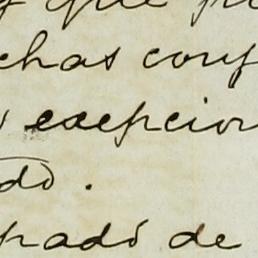 y que pu
chas conf
s excepcion
do.
pado de